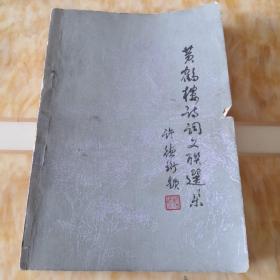 黄鹤楼诗词文联选集
许德珩题